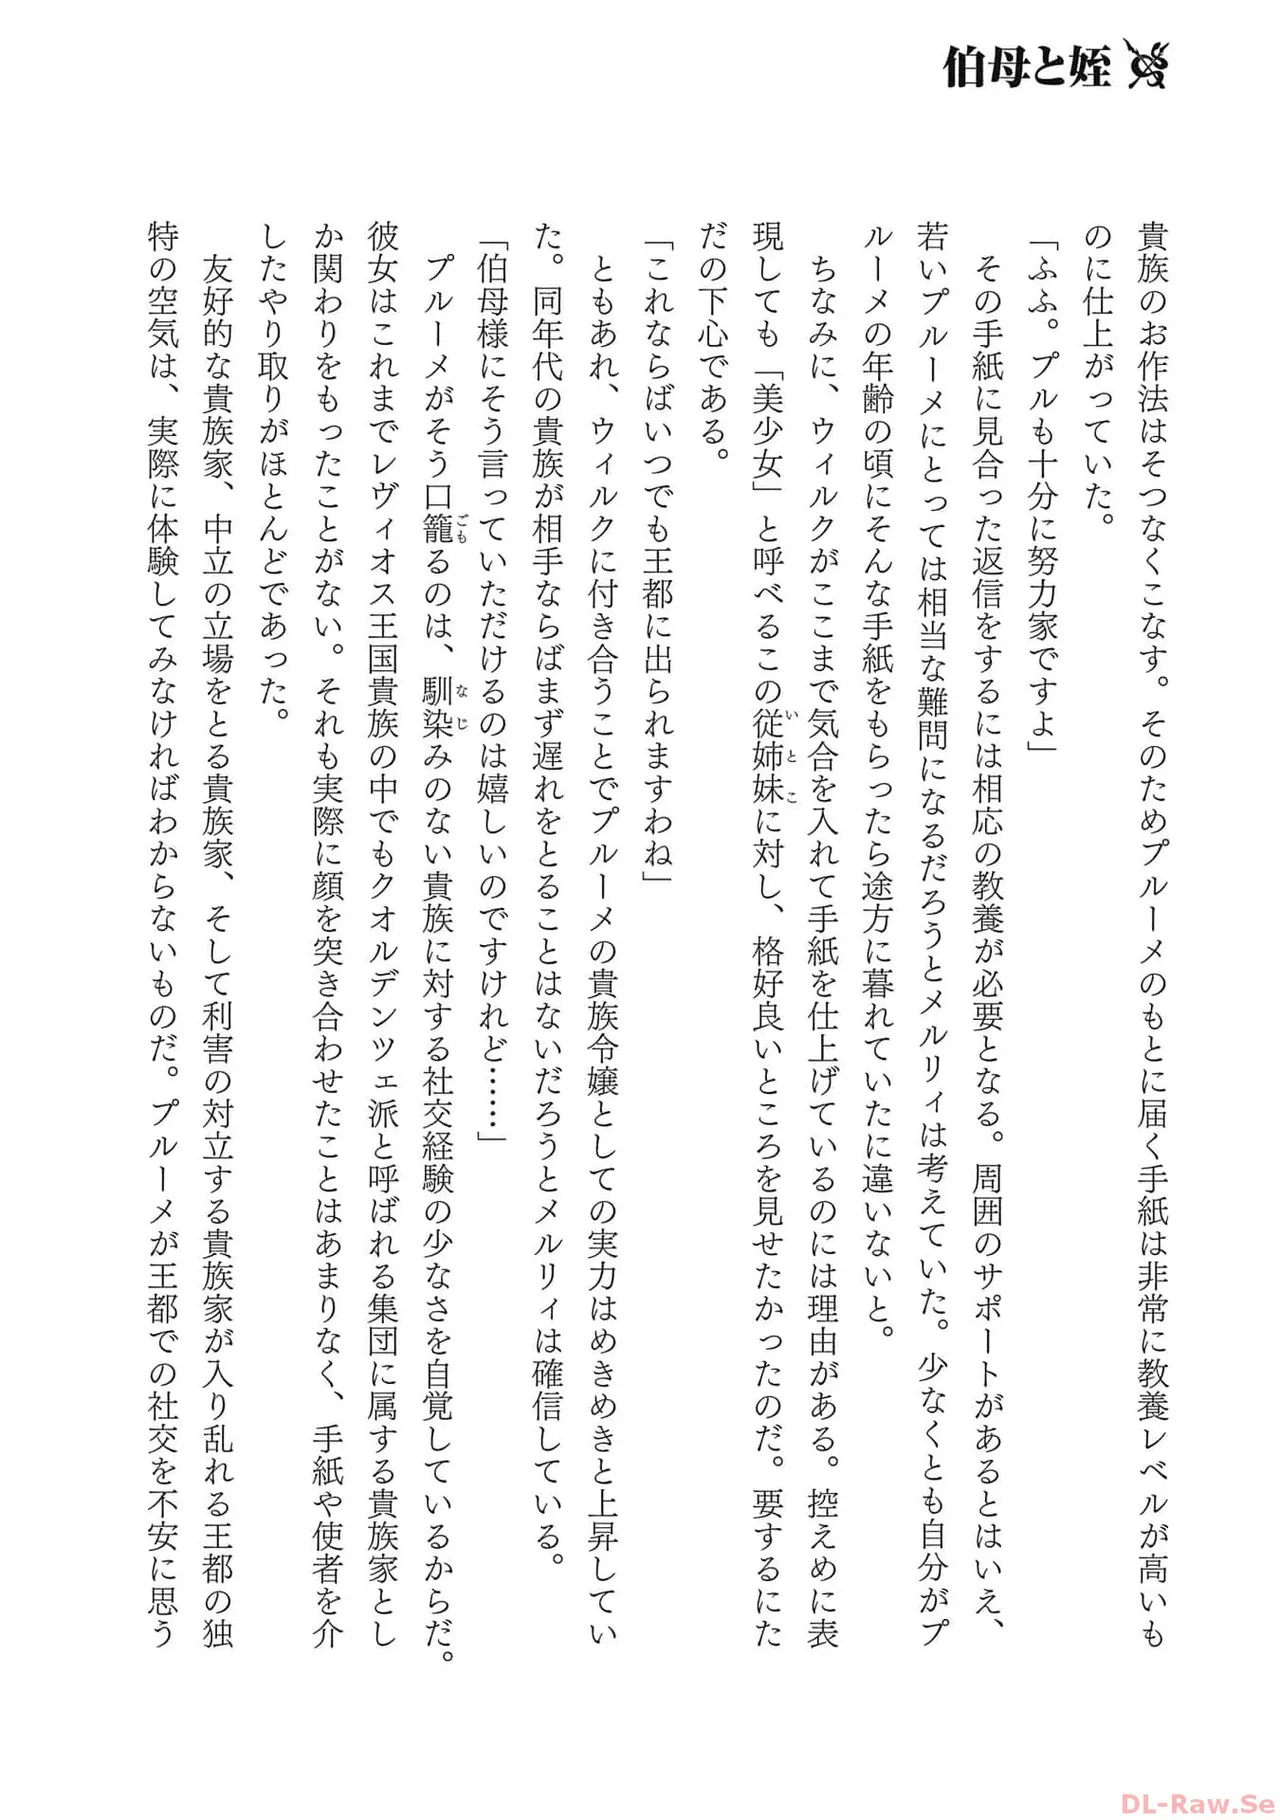 伯母と姪
貴族のお作法はそつなくこなす。そのためプルーメのもとに届く手紙は非常に教養レベルが高いも
のに仕上がっていた。
「ふふ。プルも十分に努力家ですよ」
その手紙に見合った返信をするには相応の教養が必要となる。周囲のサポートがあるとはいえ、
若いプルーメにとっては相当な難問になるだろうとメルリィは考えていた。少なくとも自分がプ
ルーメの年齢の頃にそんな手紙をもらったら途方に暮れていたに違いないと。
ちなみに、ウィルクがここまで気合を入れて手紙を仕上げているのには理由がある。控えめに表
現しても「美少女」と呼べるこの従姉妹に対し、格好良いところを見せたかったのだ。要するにた
だの下心である。
「これならばいつでも王都に出られますわね」
ともあれ、ウィルクに付き合うことでプルーメの貴族令嬢としての実力はめきめきと上昇してい
た。同年代の貴族が相手ならばまず遅れをとることはないだろうとメルリィは確信している。
「伯母様にそう言っていただけるのは嬉しいのですけれど……」
プルーメがそう口籠るのは、馴染みのない貴族に対する社交経験の少なさを自覚しているからだ。
彼女はこれまでレヴィオス王国貴族の中でもクオルデンツェ派と呼ばれる集団に属する貴族家とし
か関わりをもったことがない。それも実際に顔を突き合わせたことはあまりなく、手紙や使者を介
したやり取りがほとんどであった。
友好的な貴族家、中立の立場をとる貴族家、そして利害の対立する貴族家が入り乱れる王都の独
特の空気は、実際に体験してみなければわからないものだ。プルーメが王都での社交を不安に思う
DL-Raw.Se